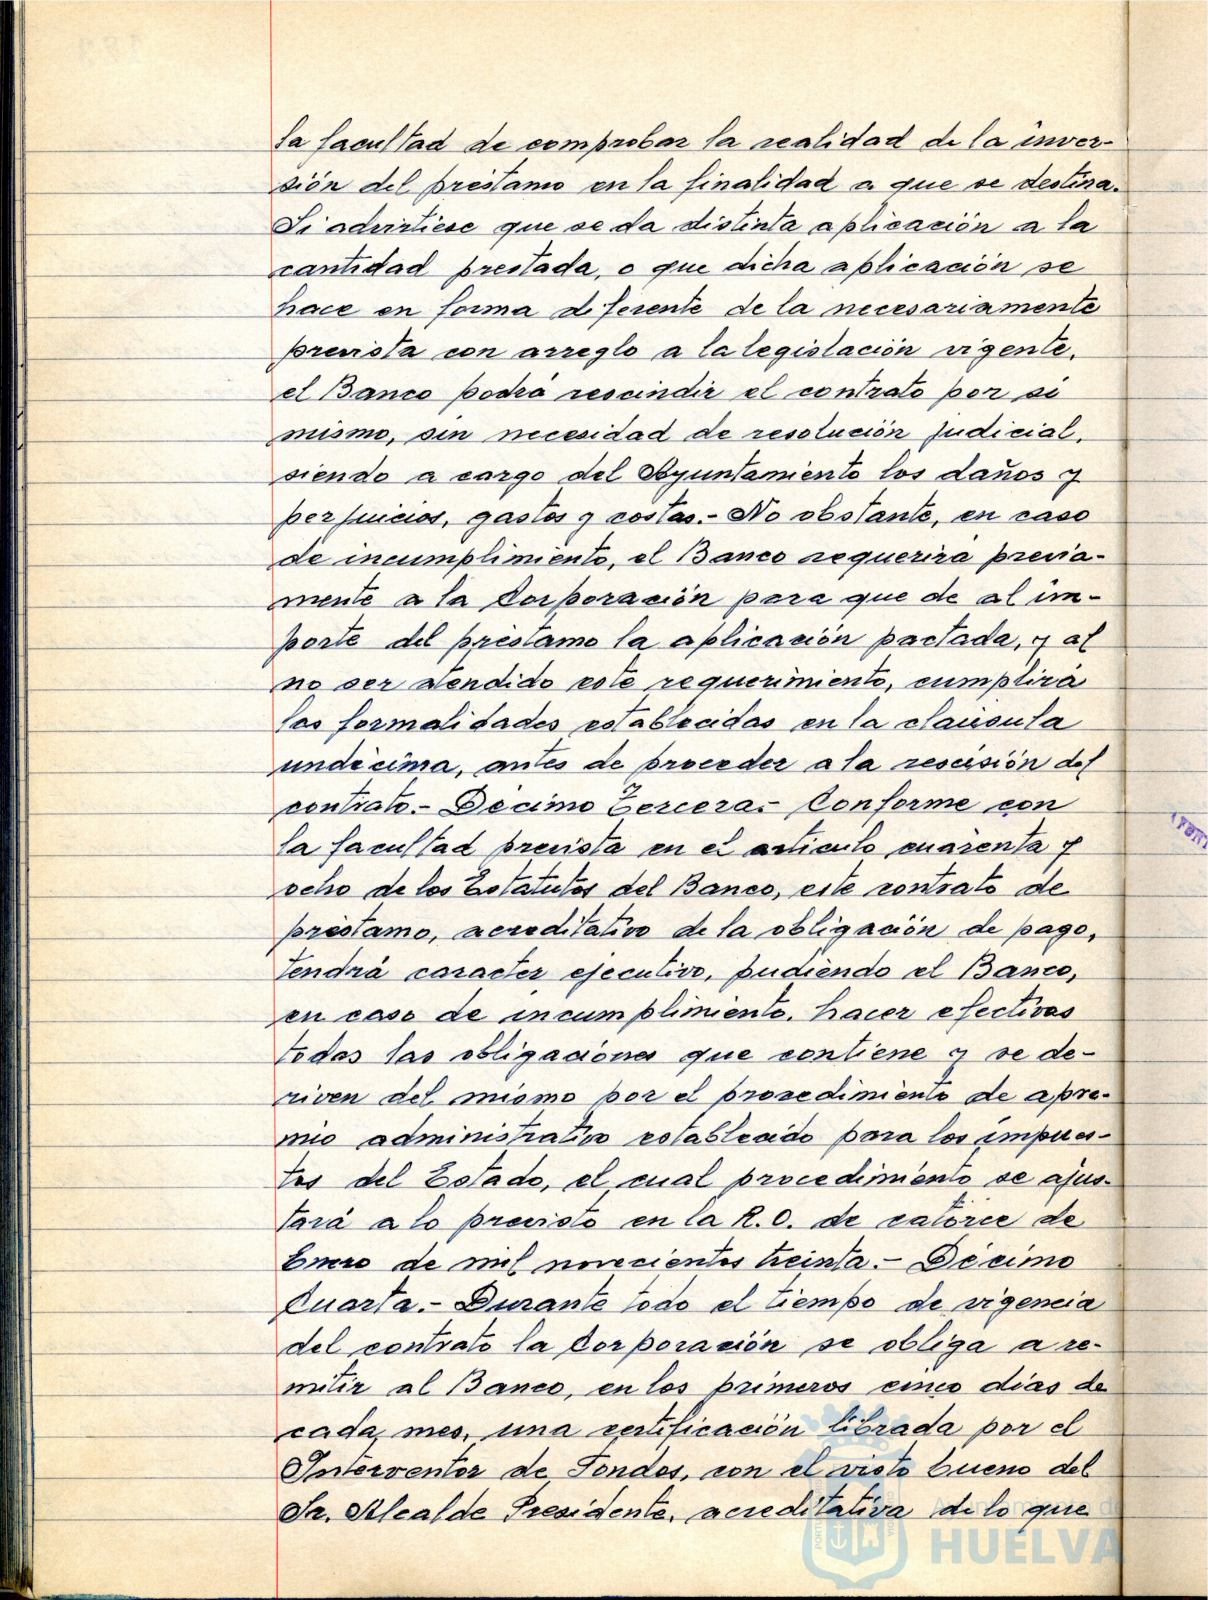 la facultad de comprobar la realidad de la inver-
sión del préstamo en la finalidad a que se destina.
Si advirtiese que se da distinta aplicación a la
cantidad prestada, o que dicha aplicación se
hace en forma diferente de la necesariamente
prevista con arreglo a la legislación vigente,
el Banco podrá rescindir el contrato por si
mismo, sin necesidad de resolución judicial,
siendo a cargo del Ayuntamiento los daños y
perjuicios, gastos y costas.- No obstante, en caso
de incumplimiento, el Banco requerirá previa-
mente a la Corporación para que de al im-
porte del préstamo la aplicación pactada, y al
no ser atendido este requerimiento, cumplirá
las formalidades establecidas en la claúsula
undécima, antes de proceder a la rescisión del
contrato.- Décimo Tercera.- Conforme con
la facultad prevista en el articulo cuarenta y
ocho de los Estatutos del Banco, este contrato de
préstamo, acreditativo de la obligación de pago,
tendrá caracter ejecutivo, pudiendo el Banco,
en caso de incumplimiento, hacer efectivas
todas las obligaciones que contiene y se de-
riven del mismo por el procedimiento de apre-
mio administrativo establecido para los impues-
tos del Estado, el cual procedimiento se ajus-
tará a lo previsto en la R. O. de catorce de
Enero de mil novecientos treinta.- Décimo
Cuarta.- Durante todo el tiempo de vigencia
del contrato la Corporación se obliga a re-
mitir al Banco, en los primeros cinco días de
cada mes, una certificación librada por el
Interventor de Fondos, con el visto bueno del
Sr. Alcalde Presidente, acreditativa de lo que
Ayuntamiento de
HUELVA